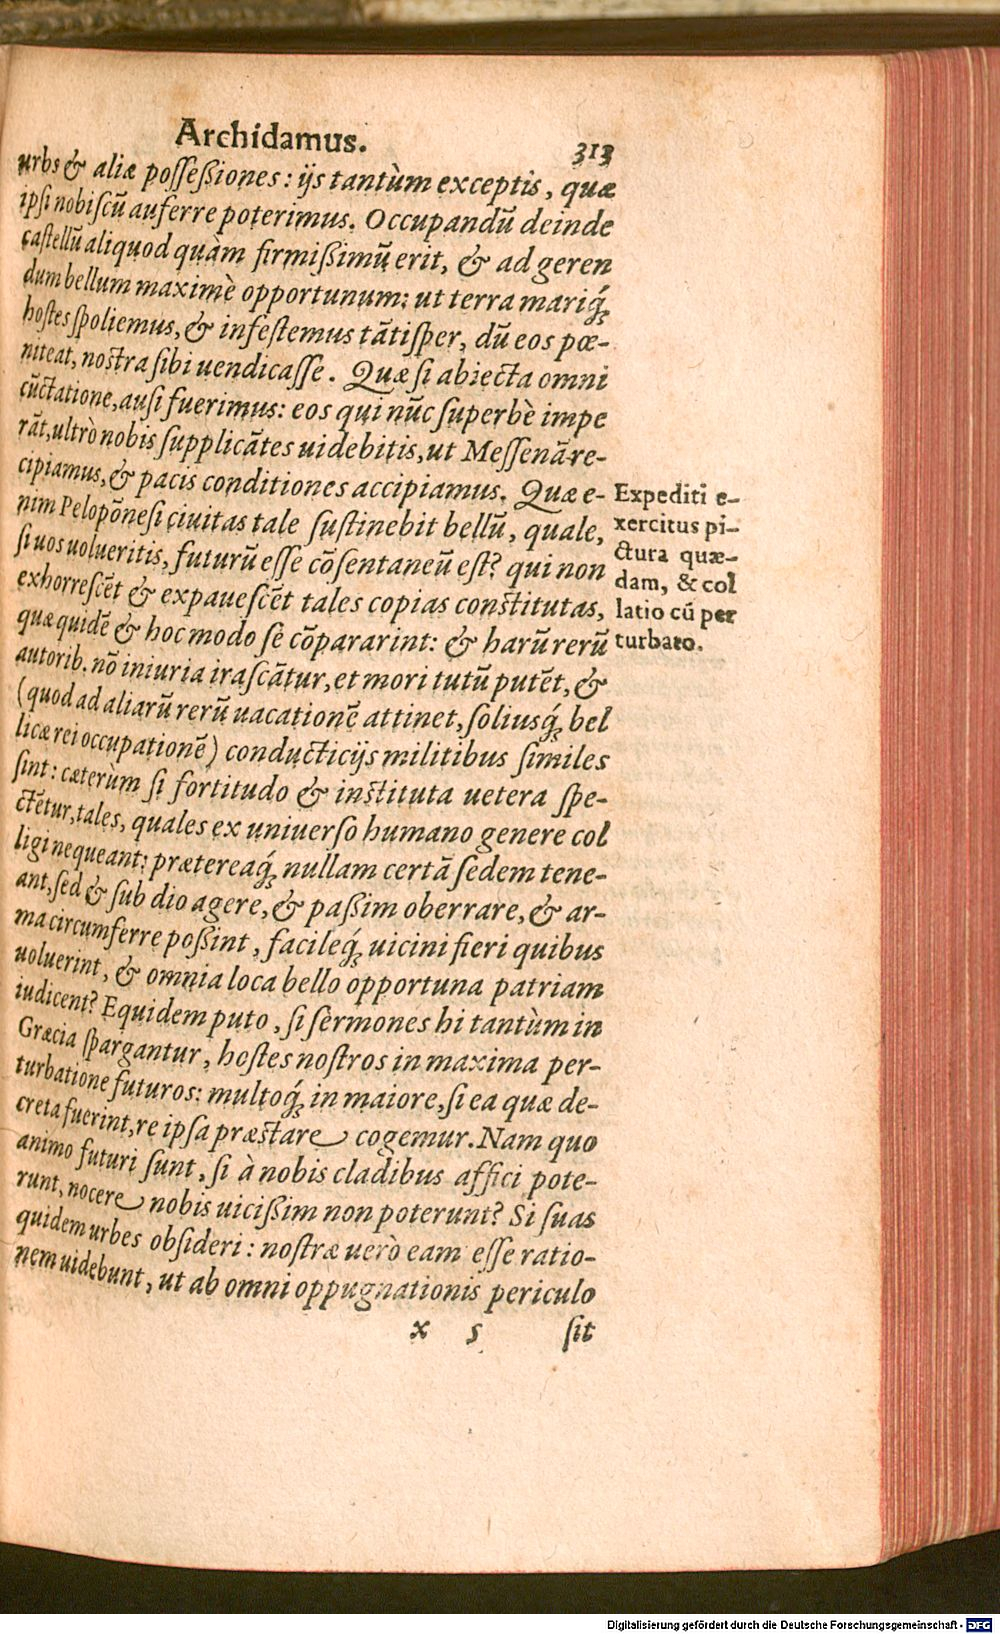 Archidamus.
313
urbs & aliæ possessiones: ijs tantùm exceptis, quæ
ipsi nobiscũ auferre poterimus. Occupandũ deinde
castellũ aliquod quàm firmissimũ erit, & ad geren
dum bellum maximè opportunum: ut terra mariq́;
hostes spoliemus, & infestemus tãtisper, dũ eos pœ-
niteat, nostra sibi uendicasse. Quæ si abiecta omni
cũctatione, ausi fuerimus: eos qui nũc superbè impe
rãt, ultrò nobis supplicãtes uidebitis, ut Messenã re-
cipiamus, & pacis conditiones accipiamus. Quæ e-
nim Pelopõnesi ciuitas tale sustinebit bellũ, quale,
si uos uolueritis, futurũ esse cõsentaneũ est? qui non
exhorrescẽt & expauescẽt tales copias constitutas,
quæ quidẽ & hoc modo se cõpararint: & harũ rerũ
autorib. nõ iniuria irascãtur, et mori tutũ putẽt, &
(quod ad aliarũ rerũ uacationẽ attinet, soliusq́; bel
licæ rei occupationẽ) conducticijs militibus similes
sint: cæterùm si fortitudo & instituta uetera spe-
ctẽtur, tales, quales ex uniuerso humano genere col
ligi nequeant: prætereaq́; nullam certã sedem tene-
ant, sed & sub dio agere, & passim oberrare, & ar-
ma circumferre possint, facileq́; uicini fieri quibus
uoluerint, & omnia loca bello opportuna patriam
iudicent? Equidem puto, si sermones hi tantùm in
Græcia spargantur, hostes nostros in maxima per-
turbatione futuros: multoq́; in maiore, si ea quæ de-
creta fuerint, re ipsa præstare cogemur. Nam quo
animo futuri sunt, si à nobis cladibus affici pote-
runt, nocere nobis uicissim non poterunt? Si suas
quidem urbes obsideri: nostræ uerò eam esse ratio-
nem uidebunt, ut ab omni oppugnationis periculo
x 5 sit
Expediti e-
xercitus pi-
ctura quæ-
dam, & col
latio cũ per
turbato.
Digitalisierung gefördert durch die Deutsche Forschungsgemeinschaft - DFG